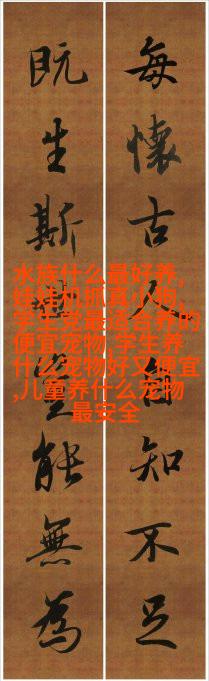 每懷古人自知不足
既生斯世豈能無為
水族什么最好养,
娃娃机抓真小狗,
学生党最适合养的
便宜宠物,学生养
什么宠物好又便宜
,儿童养什么宠物
最安全